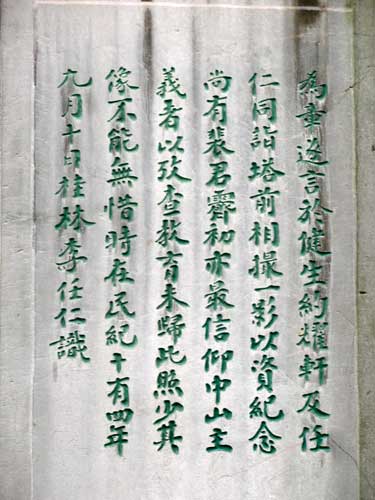 為重遊言於健生約耀軒及任
仁同詣塔前相撮一影以資紀念
尚有裴君霽初亦最信仰中山主
義者以攷查教育未歸此照少其
像不能無惜時在民紀十有四年
九月十日桂林李任仁識